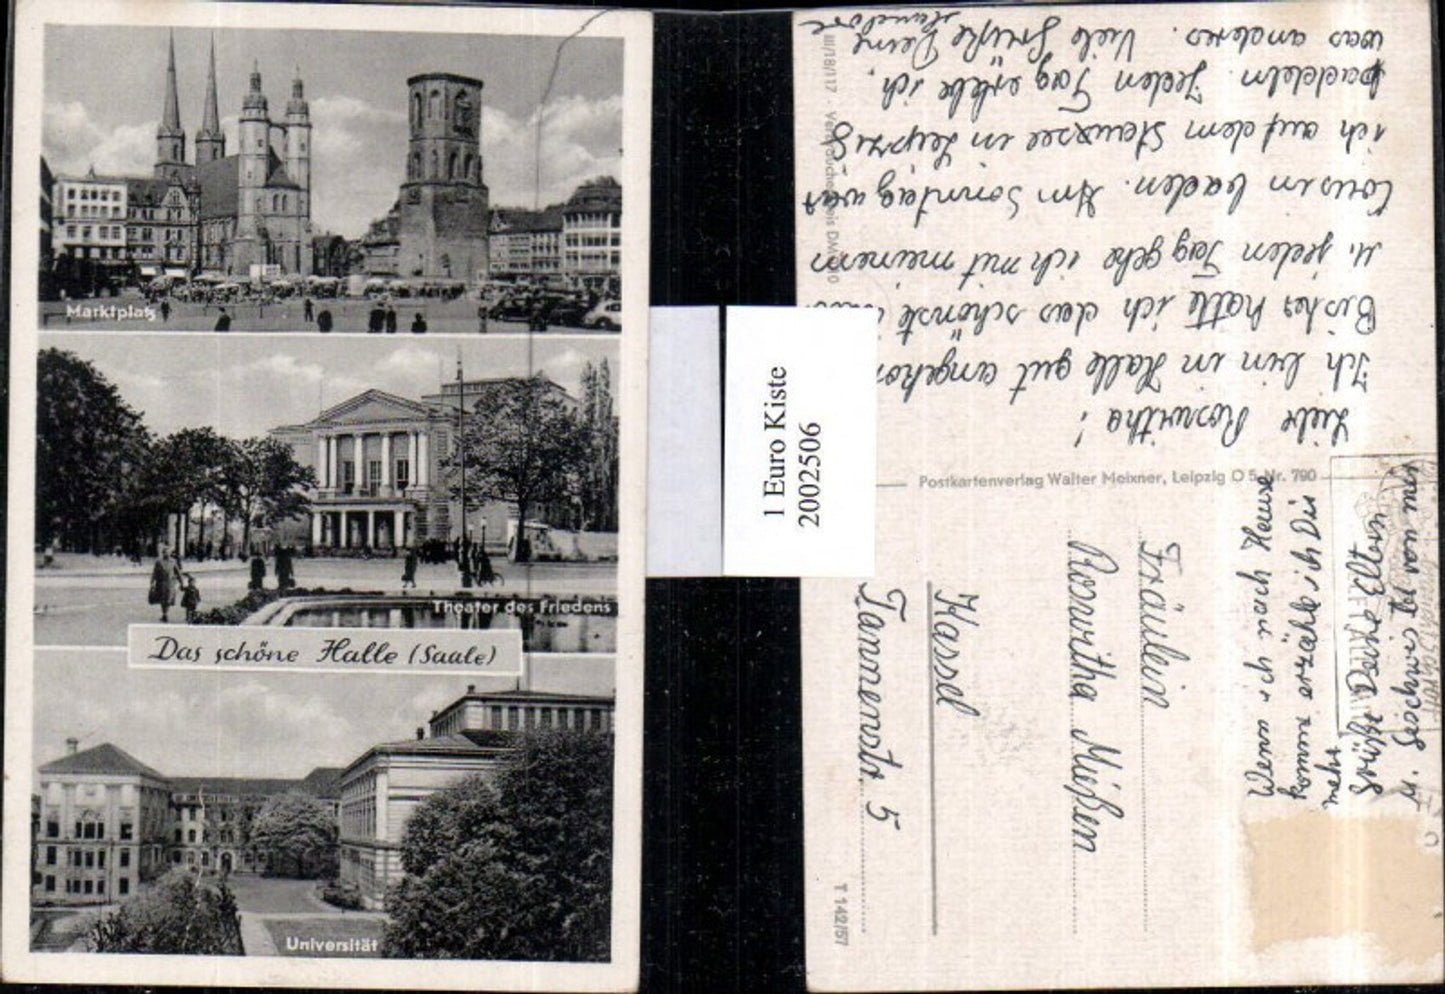 Marktplatz
Theater des Friedens
Das schöne Halle (Saale)
Universität
1 Euro Kiste
2002506
Liebe Roswitha!
Ich bin in Halle gut angekom
Bisher hatte ich das schönste
u. jeden Tag gehe ich mit meinem
Cousin baden. Am Sonntag war
ich auf dem Stausee in Leipzig
paddeln. Jeden Tag erlebe ich
was anderes. Viele Grüße Deine
Hannelore
Wenn ich nach Hause
komme erzähle ich Dir
mehr
Grüße Deine Eltern
u. Geschwister von mir
Postkartenverlag Walter Meixner, Leipzig O 5 Nr. 790
III/18/117
T 142/57
Fräulein
Roswitha Mißler
Kassel
Tannenstr. 5